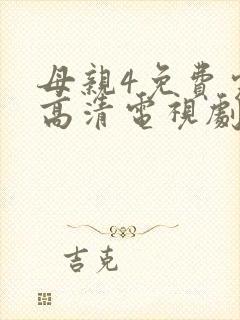 母親4免費
高清電視劇
吉克